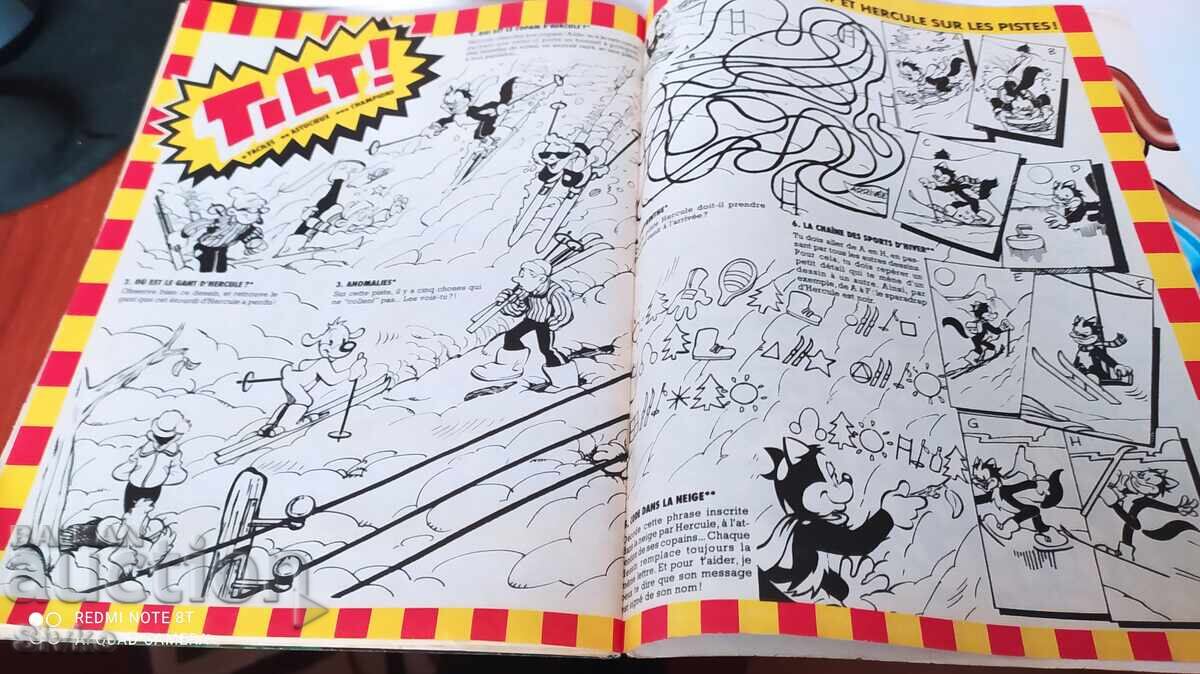 TILT!
* FACILES ** ASTUCIEUX *** CHAMPIONS
1. OÙ EST LE COPAIN D'HERCULE ?*
2. OÙ EST LE GANT D'HERCULE ?*
Observe bien ce dessin, et retrouve le
gant que cet étourdi d'Hercule a perdu !
3. ANOMALIES*
Sur cette piste, il y a cinq choses qui
ne "collent" pas... Les vois-tu ?!
ET HERCULE SUR LES PISTES !
ARRIVÉE
Hercule doit-il prendre
à l'arrivée ?
6. LA CHAÎNE DES SPORTS D'HIVER**
Tu dois aller de A en H, en pas-
sant par tous les autres dessins.
Pour cela, tu dois repérer un
petit détail qui te mène d'un
dessin à un autre. Ainsi, par
exemple, de A à F : le sparadrap
d'Hercule est noir.
A
F
G
H
DANS LA NEIGE**
cette phrase inscrite
neige par Hercule, à l'at-
de ses copains... Chaque
dessin remplace toujours la
même lettre. Et pour t'aider, je
te dire que son message
signé de son nom !
BALKAN
auction
REDMI NOTE 8T
AI QUAD CAMERA